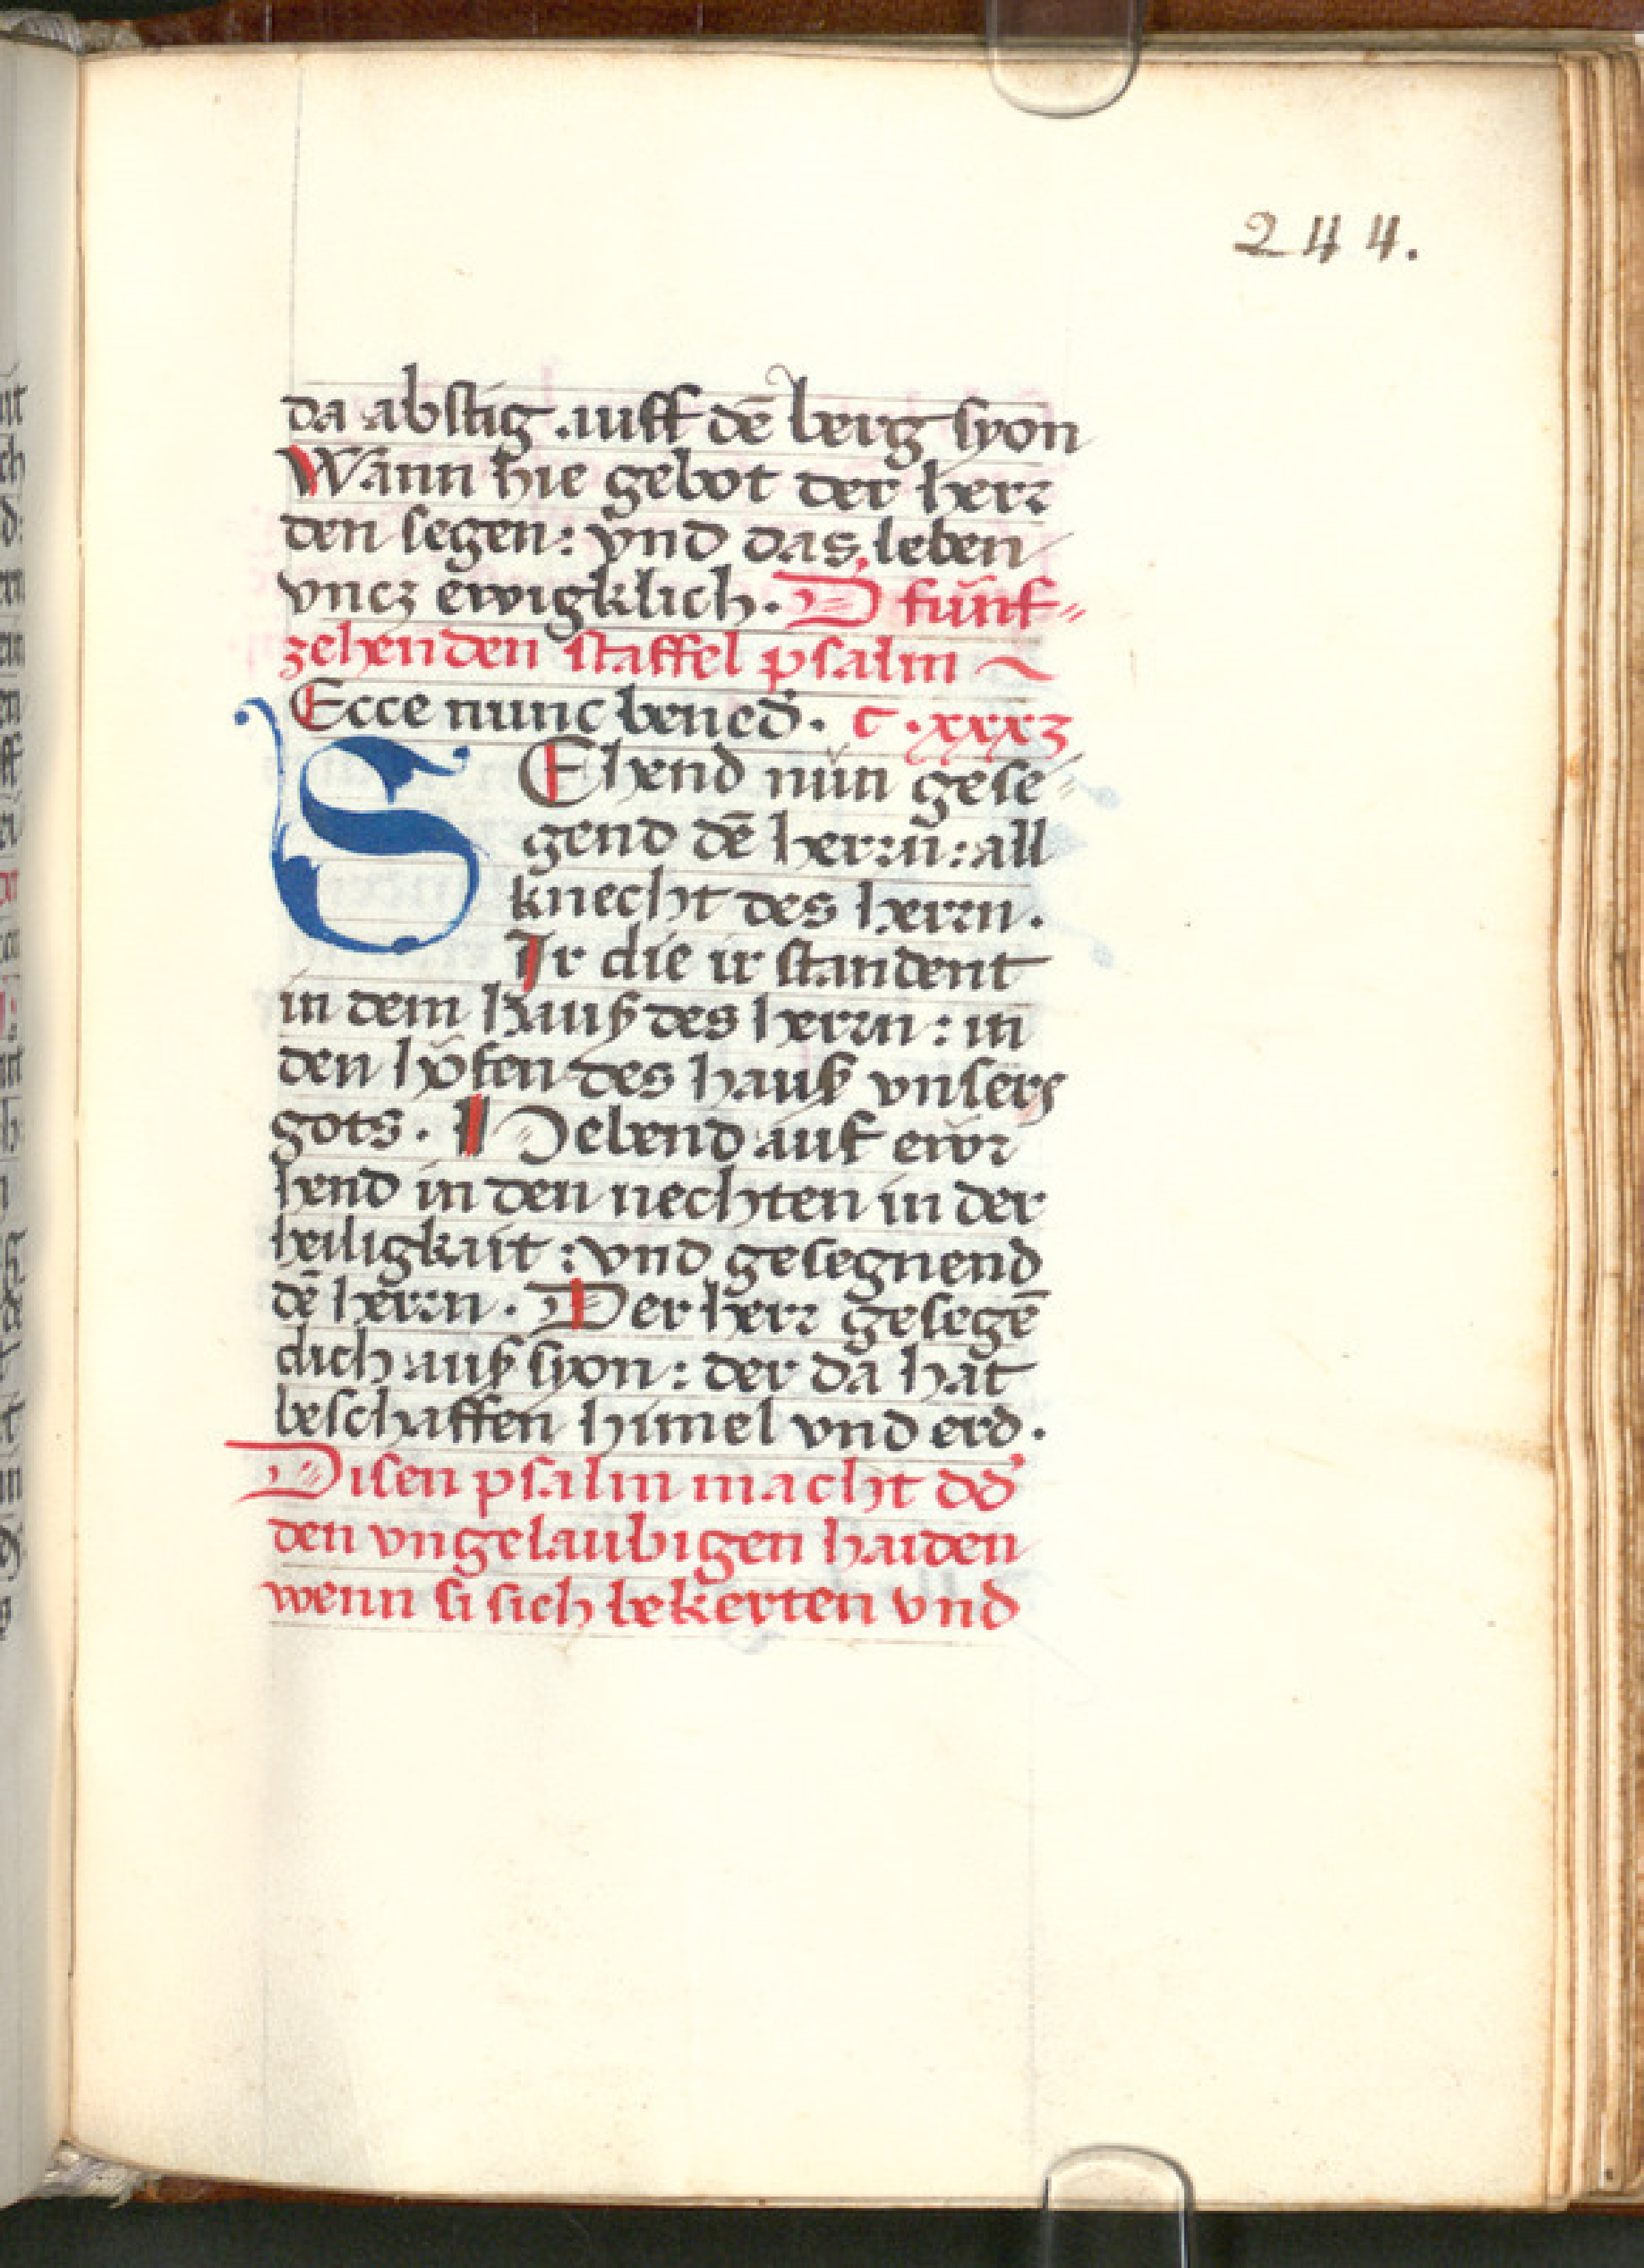 244.
da abstig. auff dē berg syon
Wann hie gebot der herr
den segen: vnd das leben
vncz ewigklich. D fünf=
zehenden staffel psalm ~
Ecce nunc bened̄. c. xxxz
SEhend nŭn gese=
gend dē herrn: all
knecht des herrn.
Ir die ir standent
in dem hauß des herrn: in
den höfen des hauß vnsers
gots. Hebend auf ewr
hend in den nechten in der
heiligkait: vnd gesegnend
dē herrn. Der herr gesegē
dich auß syon: der da hat
beschaffen himel vnd erd.
Disen psalm macht dd̄
den vngelaubigen haiden
wenn si sich bekerten vnd